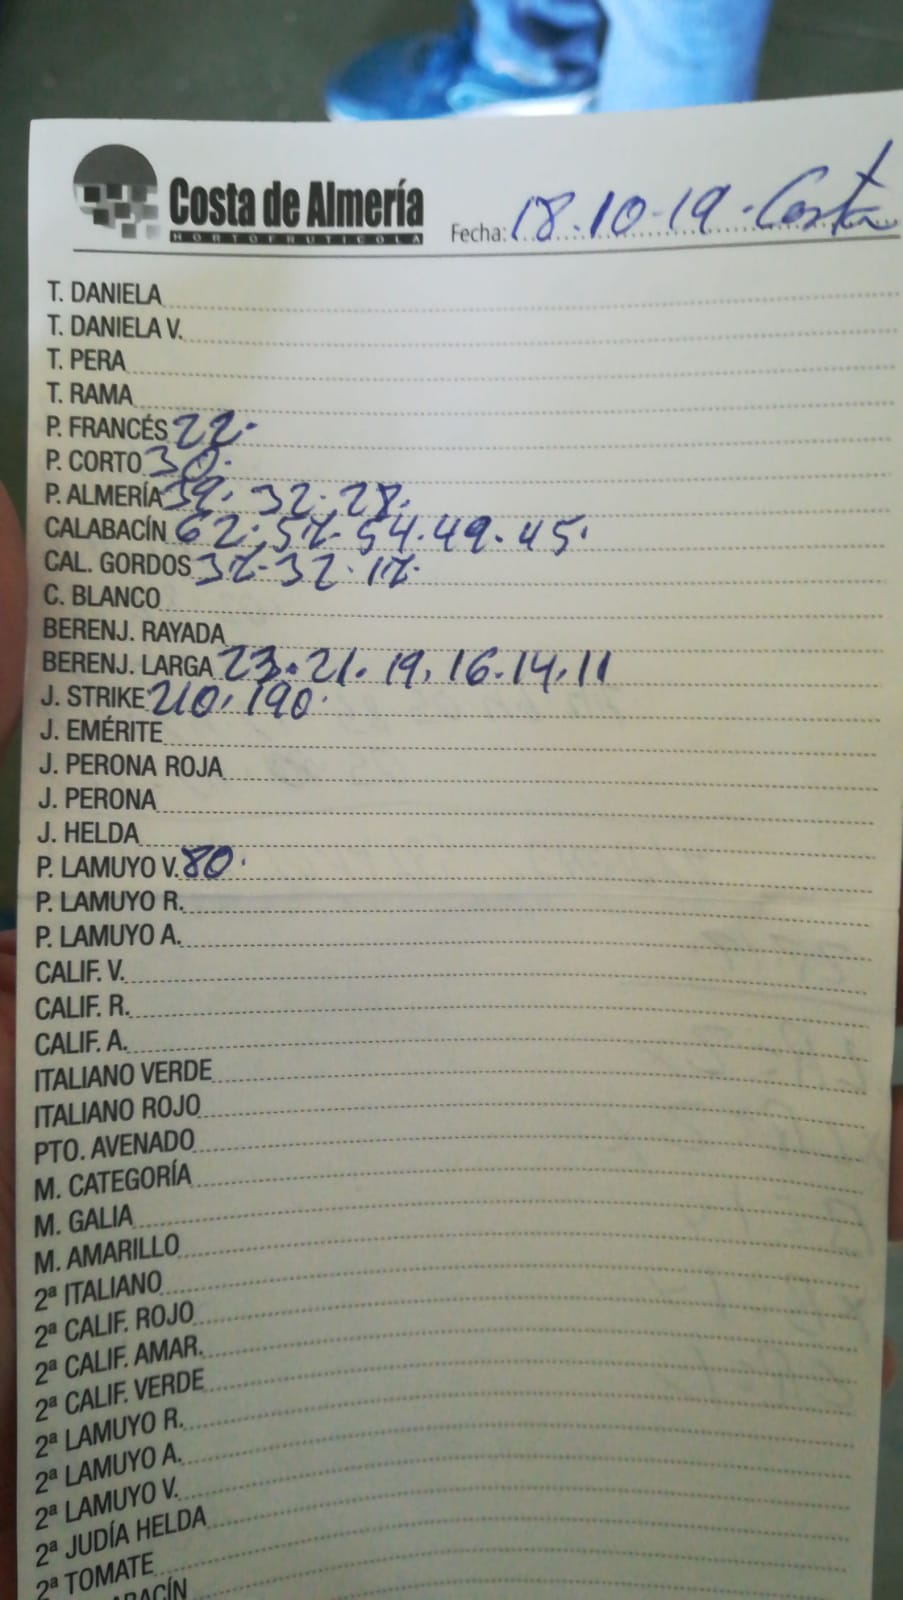 Costa de Almería
HORTOFRUTICOLA
Fecha: 18.10-19. Costa
T. DANIELA
T. DANIELA V.
T. PERA
T. RAMA
P. FRANCÉS 22.
P. CORTO 30.
P. ALMERÍA 39. 32. 28.
CALABACÍN 62. 57. 54. 49. 45.
CAL. GORDOS 37. 32. 17.
C. BLANCO
BERENJ. RAYADA
BERENJ. LARGA 23. 21. 19. 16. 14. 11
J. STRIKE 210. 190.
J. EMÉRITE
J. PERONA ROJA
J. PERONA
J. HELDA
P. LAMUYO V. 80.
P. LAMUYO R.
P. LAMUYO A.
CALIF. V.
CALIF. R.
CALIF. A.
ITALIANO VERDE
ITALIANO ROJO
PTO. AVENADO
M. CATEGORÍA
M. GALIA
M. AMARILLO
2ª ITALIANO
2ª CALIF. ROJO
2ª CALIF. AMAR.
2ª CALIF. VERDE
2ª LAMUYO R.
2ª LAMUYO A.
2ª LAMUYO V.
2ª JUDÍA HELDA
2ª TOMATE